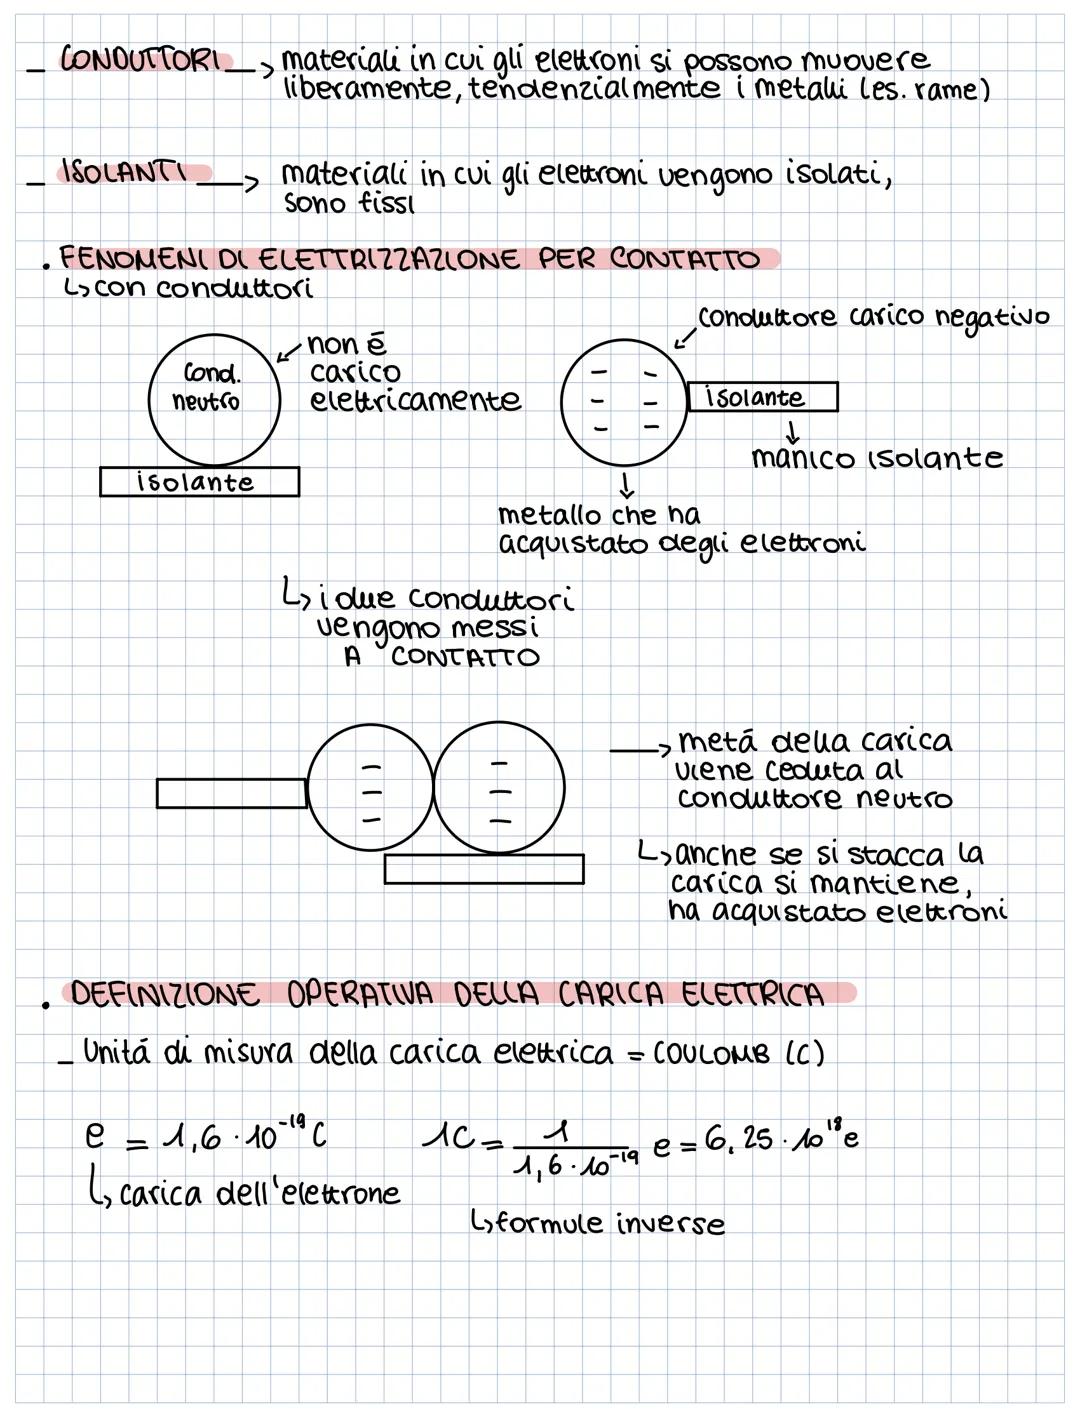 _ CONDUTTORI → materiali in cui gli elettroni si possono muovere
liberamente, tendenzialmente i metalli (es. rame)
_ ISOLANTI → materiali in cui gli elettroni vengono isolati,
sono fissi
. FENOMENI DI ELETTRIZZAZIONE PER CONTATTO
↳ con conduttori
Cond.
neutro
non é
carico
elettricamente
isolante
conduttore carico negativo
isolante
manico isolante
metallo che ha
acquistato degli elettroni
↳ i due conduttori
vengono messi
A CONTATTO
→ metá della carica
viene ceduta al
conduttore neutro
↳ anche se si stacca la
carica si mantiene,
ha acquistato elettroni
. DEFINIZIONE OPERATIVA DELLA CARICA ELETTRICA
_ Unitá di misura della carica elettrica = COULOMB (C)
e = 1,6 · 10⁻¹⁹ C
↳ carica dell'elettrone
1C = 1 / 1,6 · 10⁻¹⁹ e = 6,25 · 10¹⁸ e
↳ formule inverse